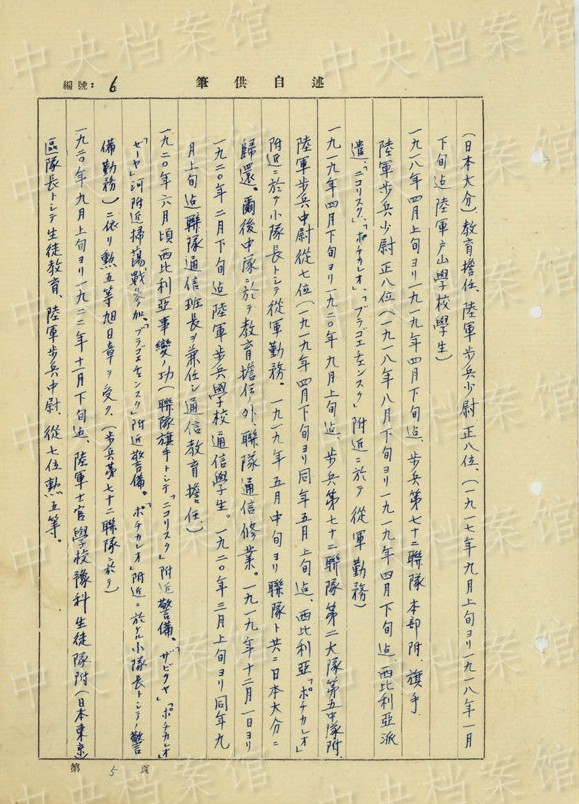 編號：6
述自供筆
(日本大分)教育擔任、陸軍步兵少尉正八位、(一九一七年九月上旬ヨリ一九一八年一月
下旬迠陸軍戸山學校學生)
一九一八年四月上旬ヨリ一九一九年四月下旬迠、步兵第七十二聯隊本部附、旗手
陸軍步兵少尉正八位(一九一八年八月下旬ヨリ一九一九年四月下旬迠、西比利亜派
遣、「ニコリスク」、「ポチカレオ」、「ブラゴエチェンスク」附近ニ於テ從軍勤務)
一九一九年四月下旬ヨリ一九二〇年九月上旬迠、步兵第七十二聯隊第二大隊第五中隊附、
陸軍步兵中尉從七位(一九一九年四月下旬ヨリ同年五月上旬迠、西比利亜「ポチカレオ」
附近ニ於テ小隊長トシテ從軍勤務。一九一九年五月中旬ヨリ聯隊ト共ニ日本大分ニ
歸還。爾後中隊ニ於テ教育擔任外、聯隊通信修業。一九一九年十二月一日ヨリ
一九二〇年二月下旬迠陸軍步兵學校通信學生。一九二〇年三月上旬ヨリ同年九
月上旬迠聯隊通信班長ヲ兼任シ通信教育擔任、)
一九二〇年六月頃西比利亜事變ノ功(聯隊旗手トシテ「ニコリスク」附近警備。「ザビタヤ」、「ポチカレオ」
「ゼーヤ」河附近掃蕩戰ニ參加。「ブラゴエチェンスク」附近警備。「ポチカレオ」附近ニ於ケル小隊長トシテノ警
備勤務)ニ依リ勲五等旭日章ヲ受ク(步兵第七十二聯隊ニ於テ)
一九二〇年九月上旬ヨリ一九二二年十一月下旬迠、陸軍士官學校豫科生徒隊附(日本東京)
區隊長トシテ生徒教育、陸軍步兵中尉、從七位勲五等。
第5頁
中央档案馆